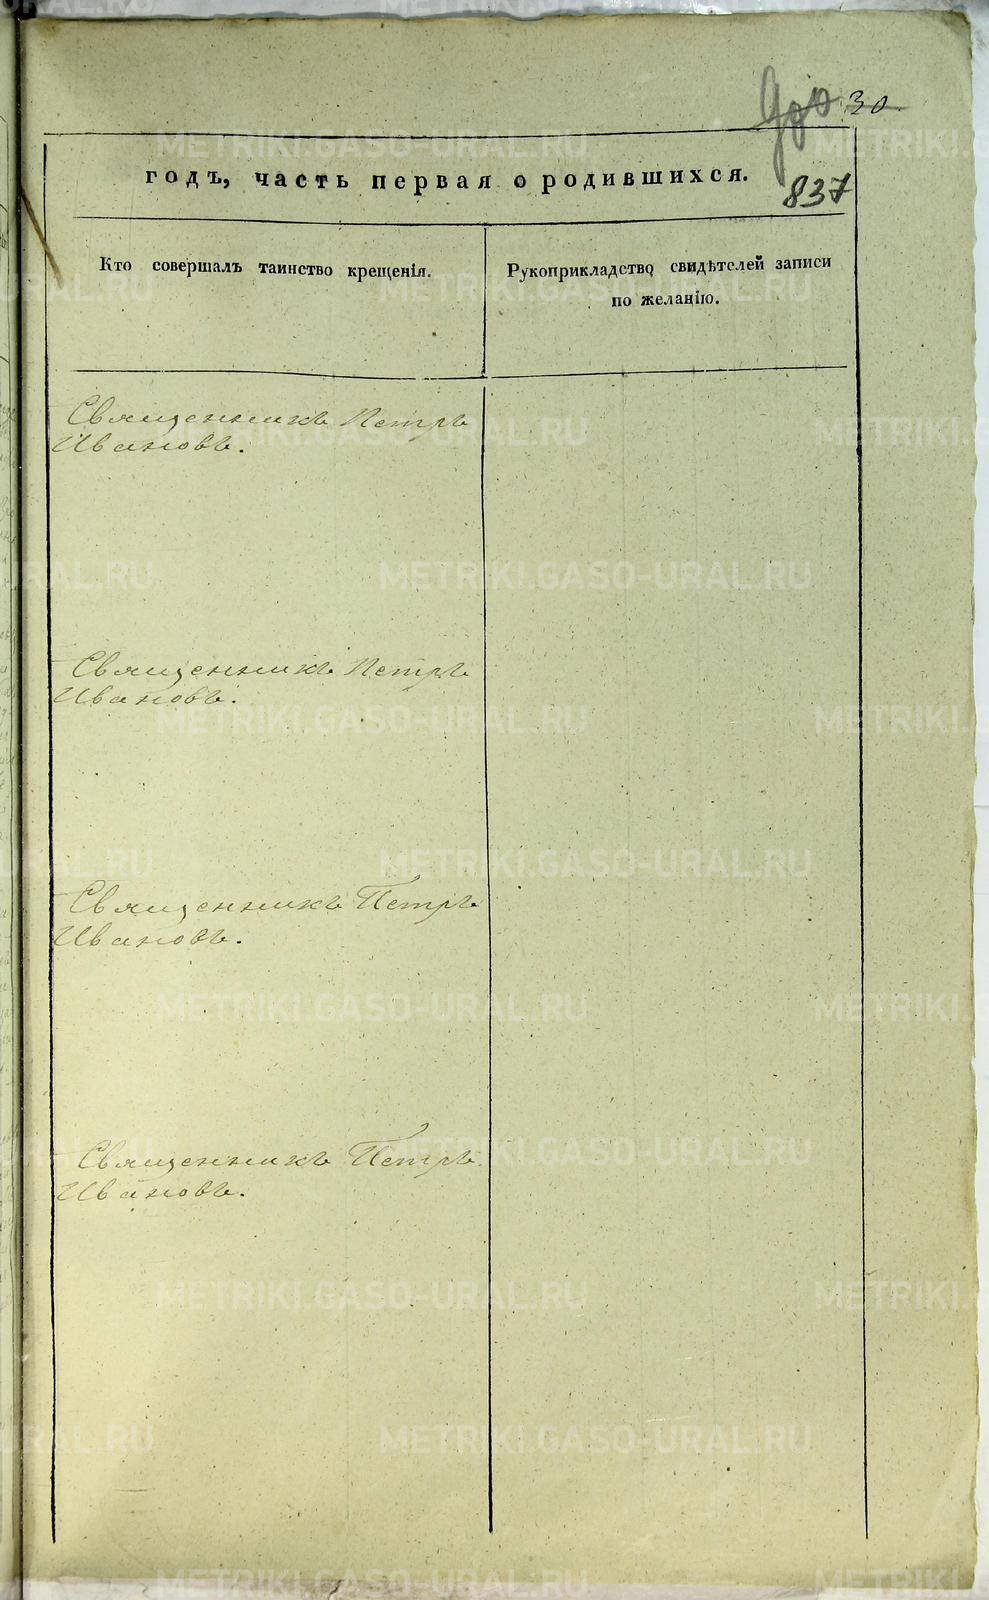 30
годъ, часть первая о родившихся.
837
Кто совершалъ таинство крещенія.
Рукоприкладство свидѣтелей записи
по желанію.
Священникъ Петръ
Ивановъ.
Священникъ Петръ
Ивановъ.
Священникъ Петръ
Ивановъ.
Священникъ Петръ
Ивановъ.
METRIKI.GASO-URAL.RU